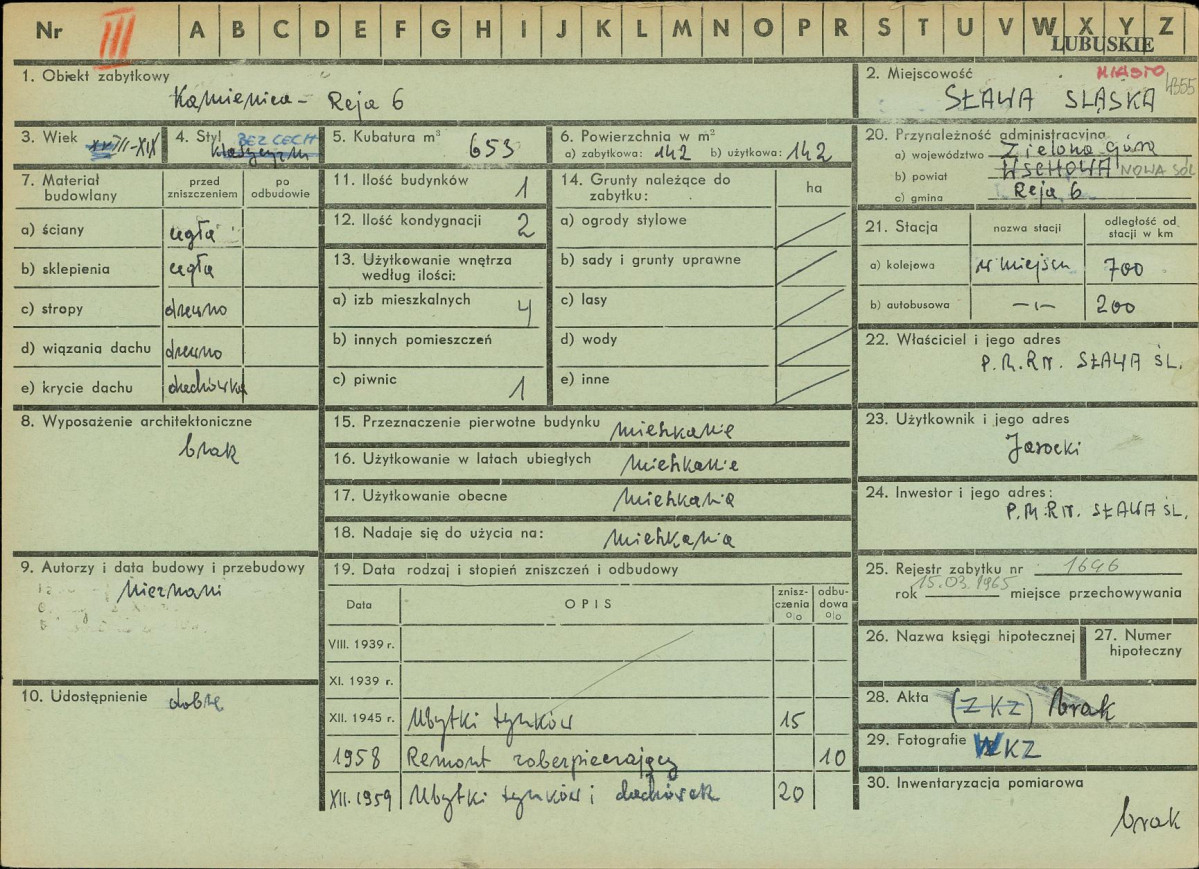 Nr III A B C D E F G H I J K L M N O P R S T U V W X Y Z
LUBUSKIE
1. Obiekt zabytkowy
Kamienica - Reja 6
2. Miejscowość MIASTO 4355
SŁAWA SLĄSKA
3. Wiek XVIII-XIX
4. Styl BEZ CECH
klasycyzm
5. Kubatura m³ 653
6. Powierzchnia w m²
a) zabytkowa: 142 b) użytkowa: 142
20. Przynależność administracyjna
a) województwo Zielona Góra
b) powiat WSCHOWA NOWA SÓL
c) gmina Reja 6
7. Materiał budowlany
przed zniszczeniem
po odbudowie
a) ściany cegła
b) sklepienia cegła
c) stropy drewno
d) wiązania dachu drewno
e) krycie dachu dachówka
11. Ilość budynków 1
12. Ilość kondygnacji 2
13. Użytkowanie wnętrza według ilości:
a) izb mieszkalnych 4
b) innych pomieszczeń
c) piwnic 1
14. Grunty należące do zabytku:
ha
a) ogrody stylowe
b) sady i grunty uprawne
c) lasy
d) wody
e) inne
21. Stacja
nazwa stacji
odległość od stacji w km
a) kolejowa w miejscu 700
b) autobusowa -ı- 200
22. Właściciel i jego adres
P.M.RN. SŁAWA ŚL.
8. Wyposażenie architektoniczne
brak
15. Przeznaczenie pierwotne budynku mieszkanie
16. Użytkowanie w latach ubiegłych mieszkanie
17. Użytkowanie obecne mieszkania
18. Nadaje się do użycia na: mieszkania
23. Użytkownik i jego adres
Jarocki
24. Inwestor i jego adres:
P.M.RN. SŁAWA ŚL.
9. Autorzy i data budowy i przebudowy
nieznani
10. Udostępnienie dobre
19. Data rodzaj i stopień zniszczeń i odbudowy
Data
OPIS
znisz-
czenia
%
odbu-
dowa
%
VIII. 1939 r.
XI. 1939 r.
XII. 1945 r. Ubytki tynków 15
1958 Remont zabezpieczający 10
XII.1959 Ubytki tynków i dachówek 20
25. Rejestr zabytku nr 1646
rok 15.03.1965 miejsce przechowywania
26. Nazwa księgi hipotecznej
27. Numer hipoteczny
28. Akta (ZKZ) brak
29. Fotografie WKZ
30. Inwentaryzacja pomiarowa
brak